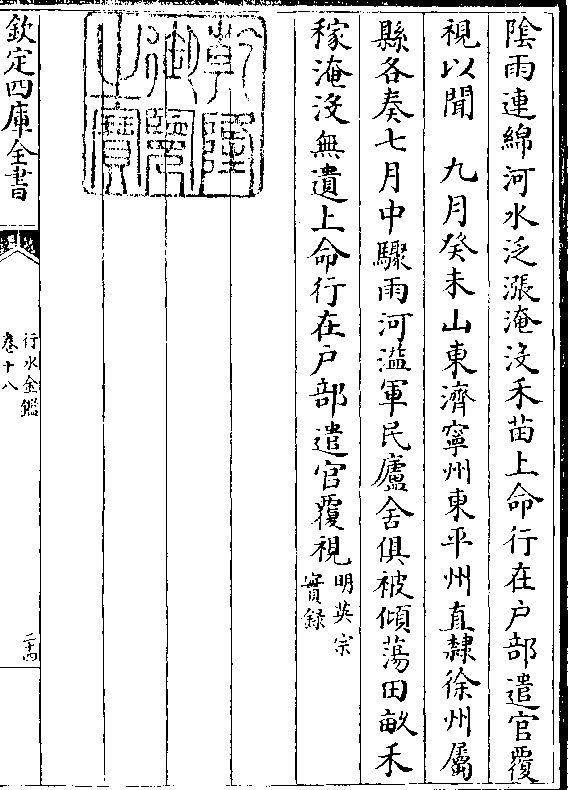 隂雨連綿河水泛漲淹没禾苗上命行在户部遣官覆
視以聞　九月癸未山東濟寧州東平州直隸徐州屬
縣各奏七月中驟雨河溢軍民廬舍俱被傾蕩田畝禾
稼淹没無遺上命行在户部遣官覆視明英宗
實録
乾隆
御覽
之寶
欽定四庫全書
行水金鑑
卷十八
二十四